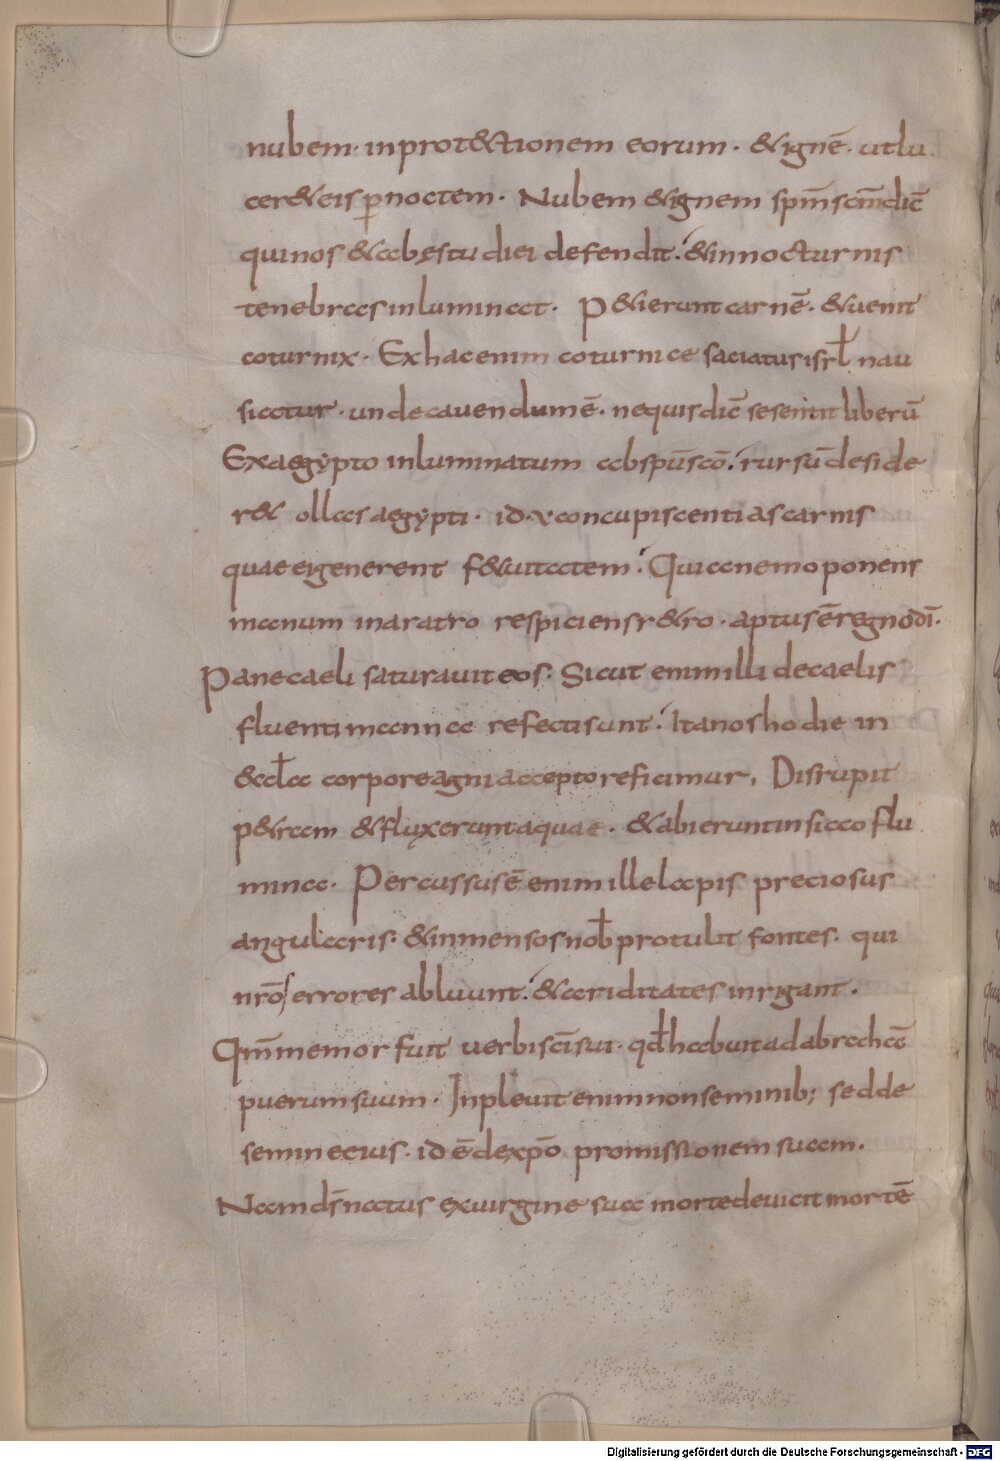 nubem· inprot&ctionem eorum· &ignē· utlu
cer&eis ꝑnoctem· Nubem &ignem spm̄scm̄dic̄
quinos &abęstu diei defendit· &innocturnis
tenebras inluminat· P&ierunt carnē· &uenit
coturnix· Exhac enim coturnice saciatus isrł nau
siatur· unde cauendum ē· nequis dic̄ se sentit liberū
Exaegypto inluminatum ab spūscō· rursū deside
r& ollas aegypti· id·÷ concupiscentias carnis
quae eigenerent f&uitatem· Quia nemo ponens
manum inaratro respiciens r&ro· aptus ē regno dī·
Pane caeli saturauit eos· Sicut enim illi de caelis
fluenti manna refecti sunt· Ita nos hodie in
&cła corpore agni accepto reficimur, Disrupit
p&ram &fluxerunt aquae· &abierunt in sicco flu
mina· Percussus ē enim ille lapis preciosus
angularis· &inmensos nob̄ protulit fontes· qui
nr̄oꝝ errores abluunt· &ariditates inrigant·
Qm̄ memor fuit uerbi sc̄i sui· qđ habuit ad abrahā
puerum suum· Inpleuit enim non seminib; sed de
semine eius· id ē dexp̄o promissionem suam·
Nam ds̄ natus exuirgine sua morte deuicit mortē
Digitalisierung gefördert durch die Deutsche Forschungsgemeinschaft - DFG